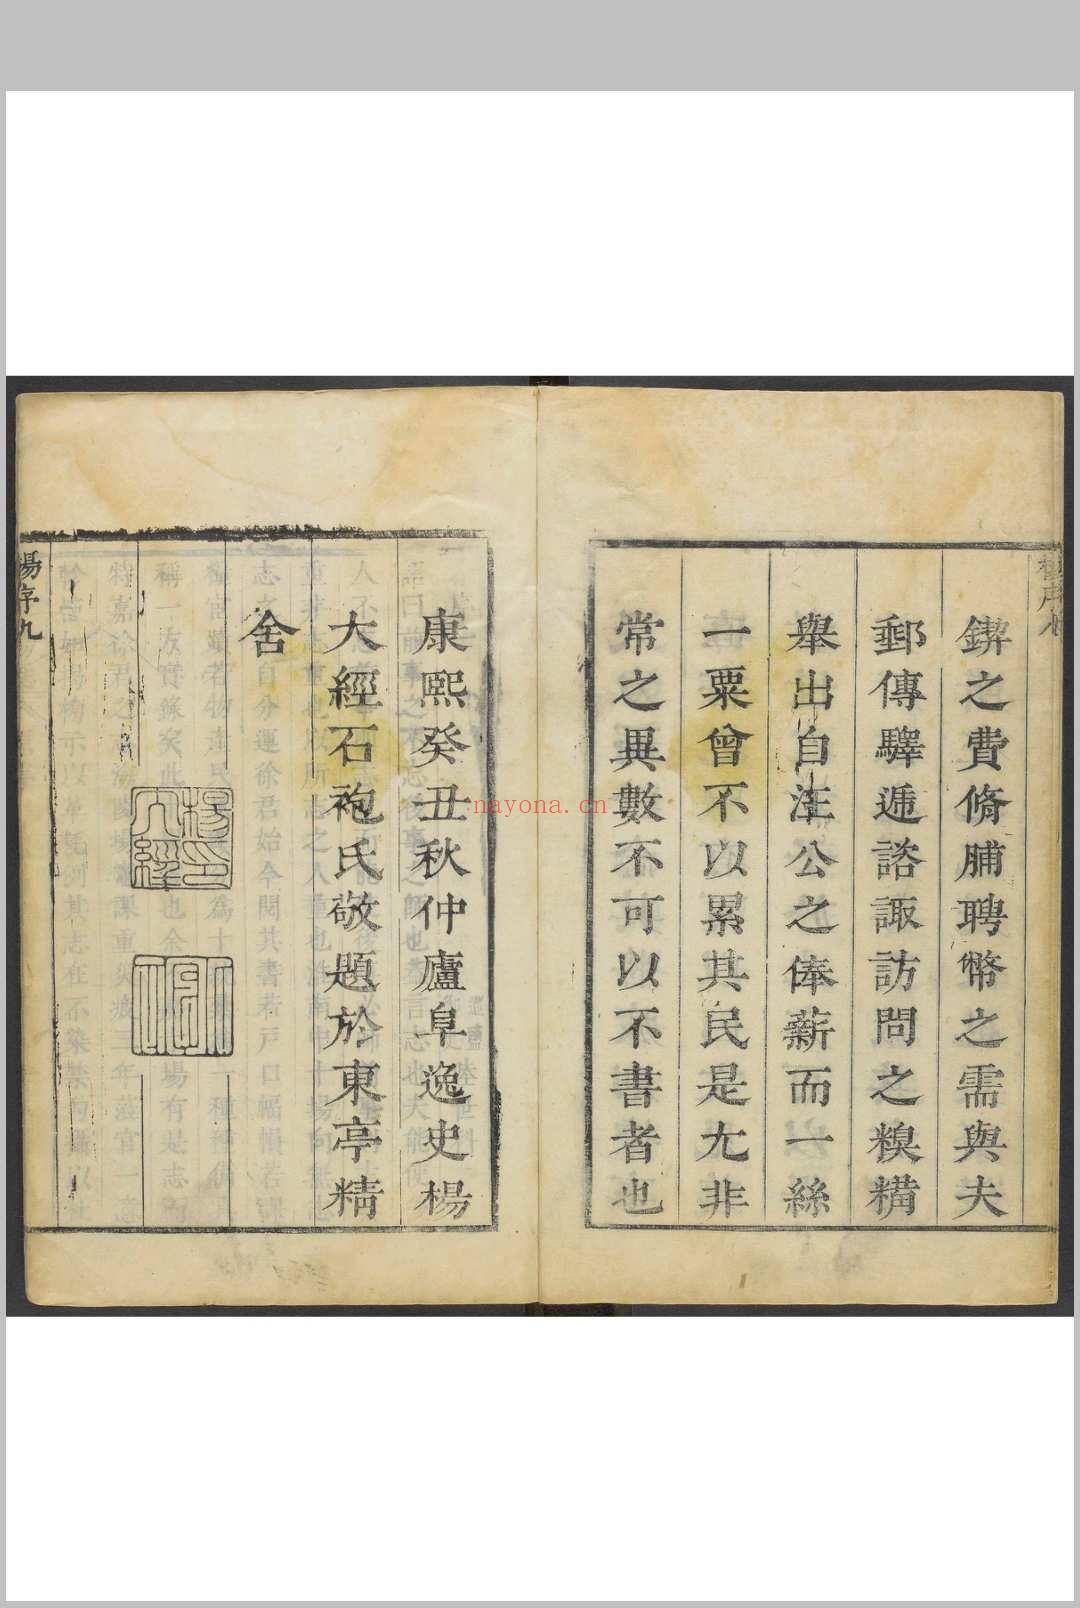 鍥之費脩脯聘幣之需與夫
郵傳驛遞諮諏訪問之糗糒
舉出自汪公之俸薪而一絲
一粟曾不以累其民是尢非
常之異數不可以不書者也
康熙癸丑秋仲廬阜逸史楊
大經石袍氏敬題於東亭精
舍
楊序九
楊印大經
nayona.cn